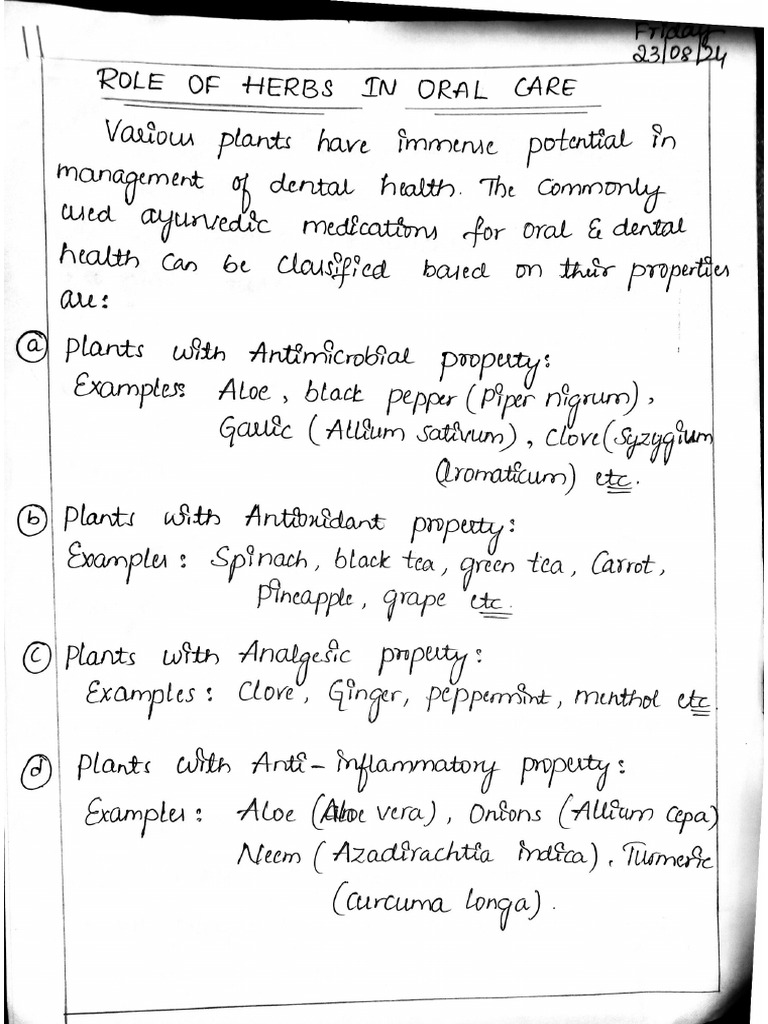 11
Friday
23/08/24
ROLE OF HERBS IN ORAL CARE
Various plants have immense potential in
management of dental health. The commonly
used ayurvedic medications for oral & dental
health can be classified based on their properties
are:
(a) Plants with Antimicrobial property:
Examples: Aloe, black pepper (Piper nigrum),
Garlic (Allium sativum), Clove (Syzygium
Aromaticum) etc.
(b) Plants with Antioxidant property:
Examples: Spinach, black tea, green tea, Carrot,
Pineapple, grape etc.
(c) Plants with Analgesic property:
Examples: Clove, Ginger, peppermint, menthol etc
(d) Plants with Anti-inflammatory property:
Examples: Aloe (Aloe vera), Onions (Allium cepa)
Neem (Azadirachtia indica), Turmeric
(curcuma longa).